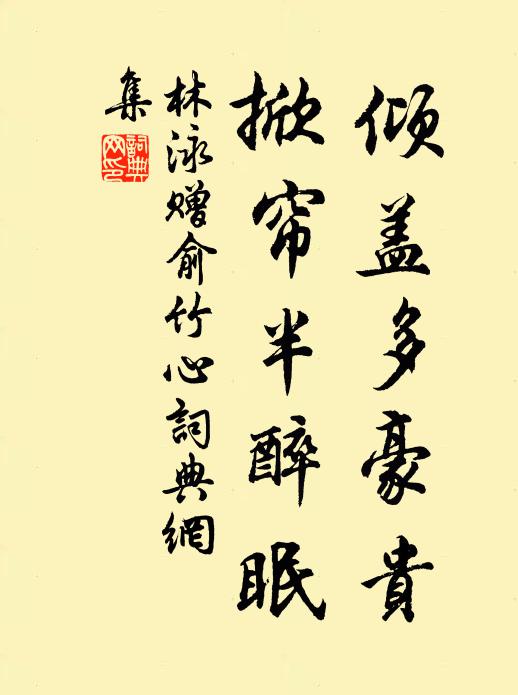 倾盖多豪貴
掀帘半醉眠
林泳赠俞竹心詞典網
集
詞典网印